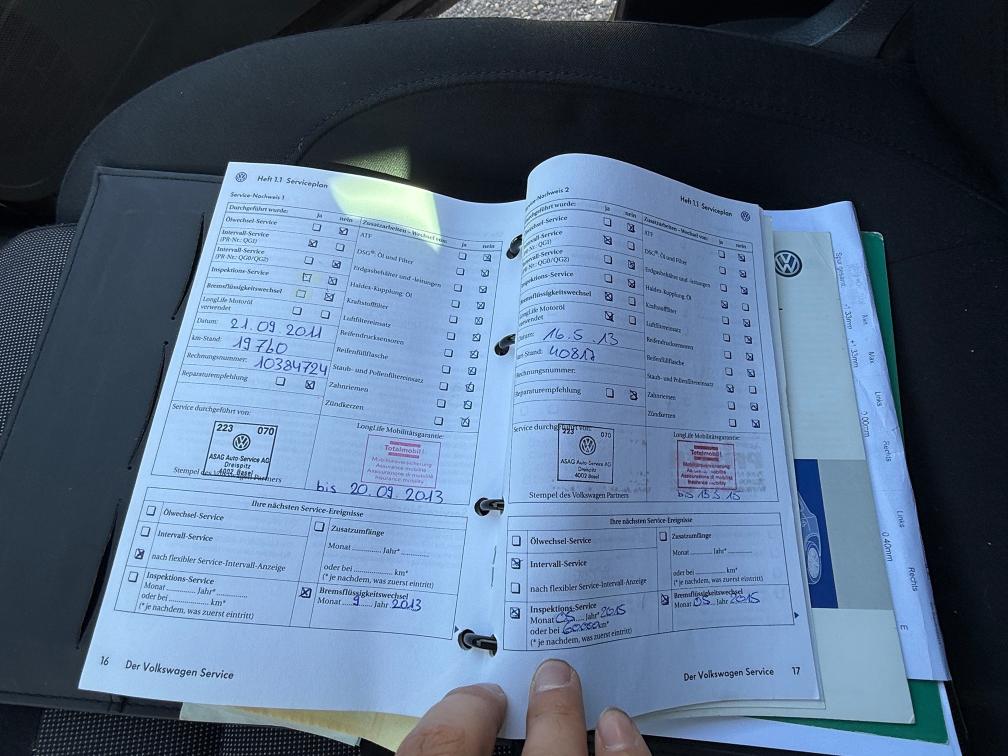 Heft 1.1 Serviceplan
Service-Nachweis 1
Durchgeführt wurde: ja nein
Ölwechsel-Service
Intervall-Service
(PR-Nr.: QG1)
Intervall-Service
(PR-Nr.: QG0/QG2)
Inspektions-Service
Bremsflüssigkeitswechsel
LongLife Motoröl
verwendet
Datum: 21.09.2011
km-Stand: 19760
Rechnungsnummer: 10384724
Reparaturempfehlung
Zusatzarbeiten - Wechsel von: ja nein
ATF
DSG®: Öl und Filter
Erdgasbehälter und -leitungen
Haldex-Kupplung: Öl
Kraftstofffilter
Luftfiltereinsatz
Reifendrucksensoren
Reifenfüllflasche
Staub- und Pollenfiltereinsatz
Zahnriemen
Zündkerzen
Service durchgeführt von:
223 070
ASAG Auto-Service AG
Dreispitz
4002 Basel
Stempel des Volkswagen Partners
LongLife Mobilitätsgarantie:
Totalmobil!
Mobilitätsversicherung
Assurance mobilité
Assicurazione di mobilità
Insurance mobility
bis 20.09.2013
Ihre nächsten Service-Ereignisse
Ölwechsel-Service
Intervall-Service
nach flexibler Service-Intervall-Anzeige
Inspektions-Service
Monat Jahr*
oder bei km*
(* je nachdem, was zuerst eintritt)
Zusatzumfänge
Monat Jahr*
oder bei km*
(* je nachdem, was zuerst eintritt)
Bremsflüssigkeitswechsel
Monat 9 Jahr 2013
16 Der Volkswagen Service
Service-Nachweis 2
Heft 1.1 Serviceplan
Durchgeführt wurde: ja nein
Ölwechsel-Service
Intervall-Service
(PR-Nr.: QG1)
Intervall-Service
(PR-Nr.: QG0/QG2)
Inspektions-Service
Bremsflüssigkeitswechsel
LongLife Motoröl
verwendet
Datum: 16.5.13
km-Stand: 40817
Rechnungsnummer:
Reparaturempfehlung
Zusatzarbeiten - Wechsel von: ja nein
ATF
DSG®: Öl und Filter
Erdgasbehälter und -leitungen
Haldex-Kupplung: Öl
Kraftstofffilter
Luftfiltereinsatz
Reifendrucksensoren
Reifenfüllflasche
Staub- und Pollenfiltereinsatz
Zahnriemen
Zündkerzen
Service durchgeführt von:
223 070
ASAG Auto-Service AG
Dreispitz
4002 Basel
Stempel des Volkswagen Partners
LongLife Mobilitätsgarantie:
Totalmobil!
Mobilitätsversicherung
Assurance mobilité
Assicurazione di mobilità
Insurance mobility
bis 15.5.15
Ihre nächsten Service-Ereignisse
Ölwechsel-Service
Intervall-Service
nach flexibler Service-Intervall-Anzeige
Inspektions-Service
Monat 05 Jahr* 2015
oder bei 60000 km*
(* je nachdem, was zuerst eintritt)
Zusatzumfänge
Monat Jahr*
oder bei km*
(* je nachdem, was zuerst eintritt)
Bremsflüssigkeitswechsel
Monat 05 Jahr 2015
Der Volkswagen Service 17
Min.
Max.
Links
Rechts
0.00mm
Links
Rechts
0.40mm